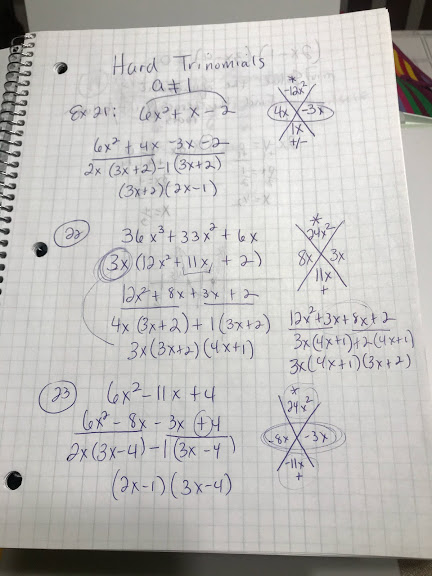 Hard Trinomials
a≠1
Ex 21: 6x² + x - 2
6x² + 4x -3x -2
2x (3x+2) -1 (3x+2)
(3x+2)(2x-1)
*
-12x²
4x -3x
1x
+/-
22 36x³ + 33x² + 6x
3x (12x² + 11x + 2)
12x² + 8x + 3x + 2
4x (3x+2) + 1 (3x+2)
3x (3x+2) (4x+1)
*
24x²
8x 3x
11x
+
12x² + 3x + 8x + 2
3x (4x+1) + 2 (4x+1)
3x (4x+1) (3x+2)
23 6x² - 11x + 4
6x² - 8x - 3x + 4
2x (3x-4) -1 (3x-4)
(2x-1) (3x-4)
*
24x²
-8x -3x
-11x
+